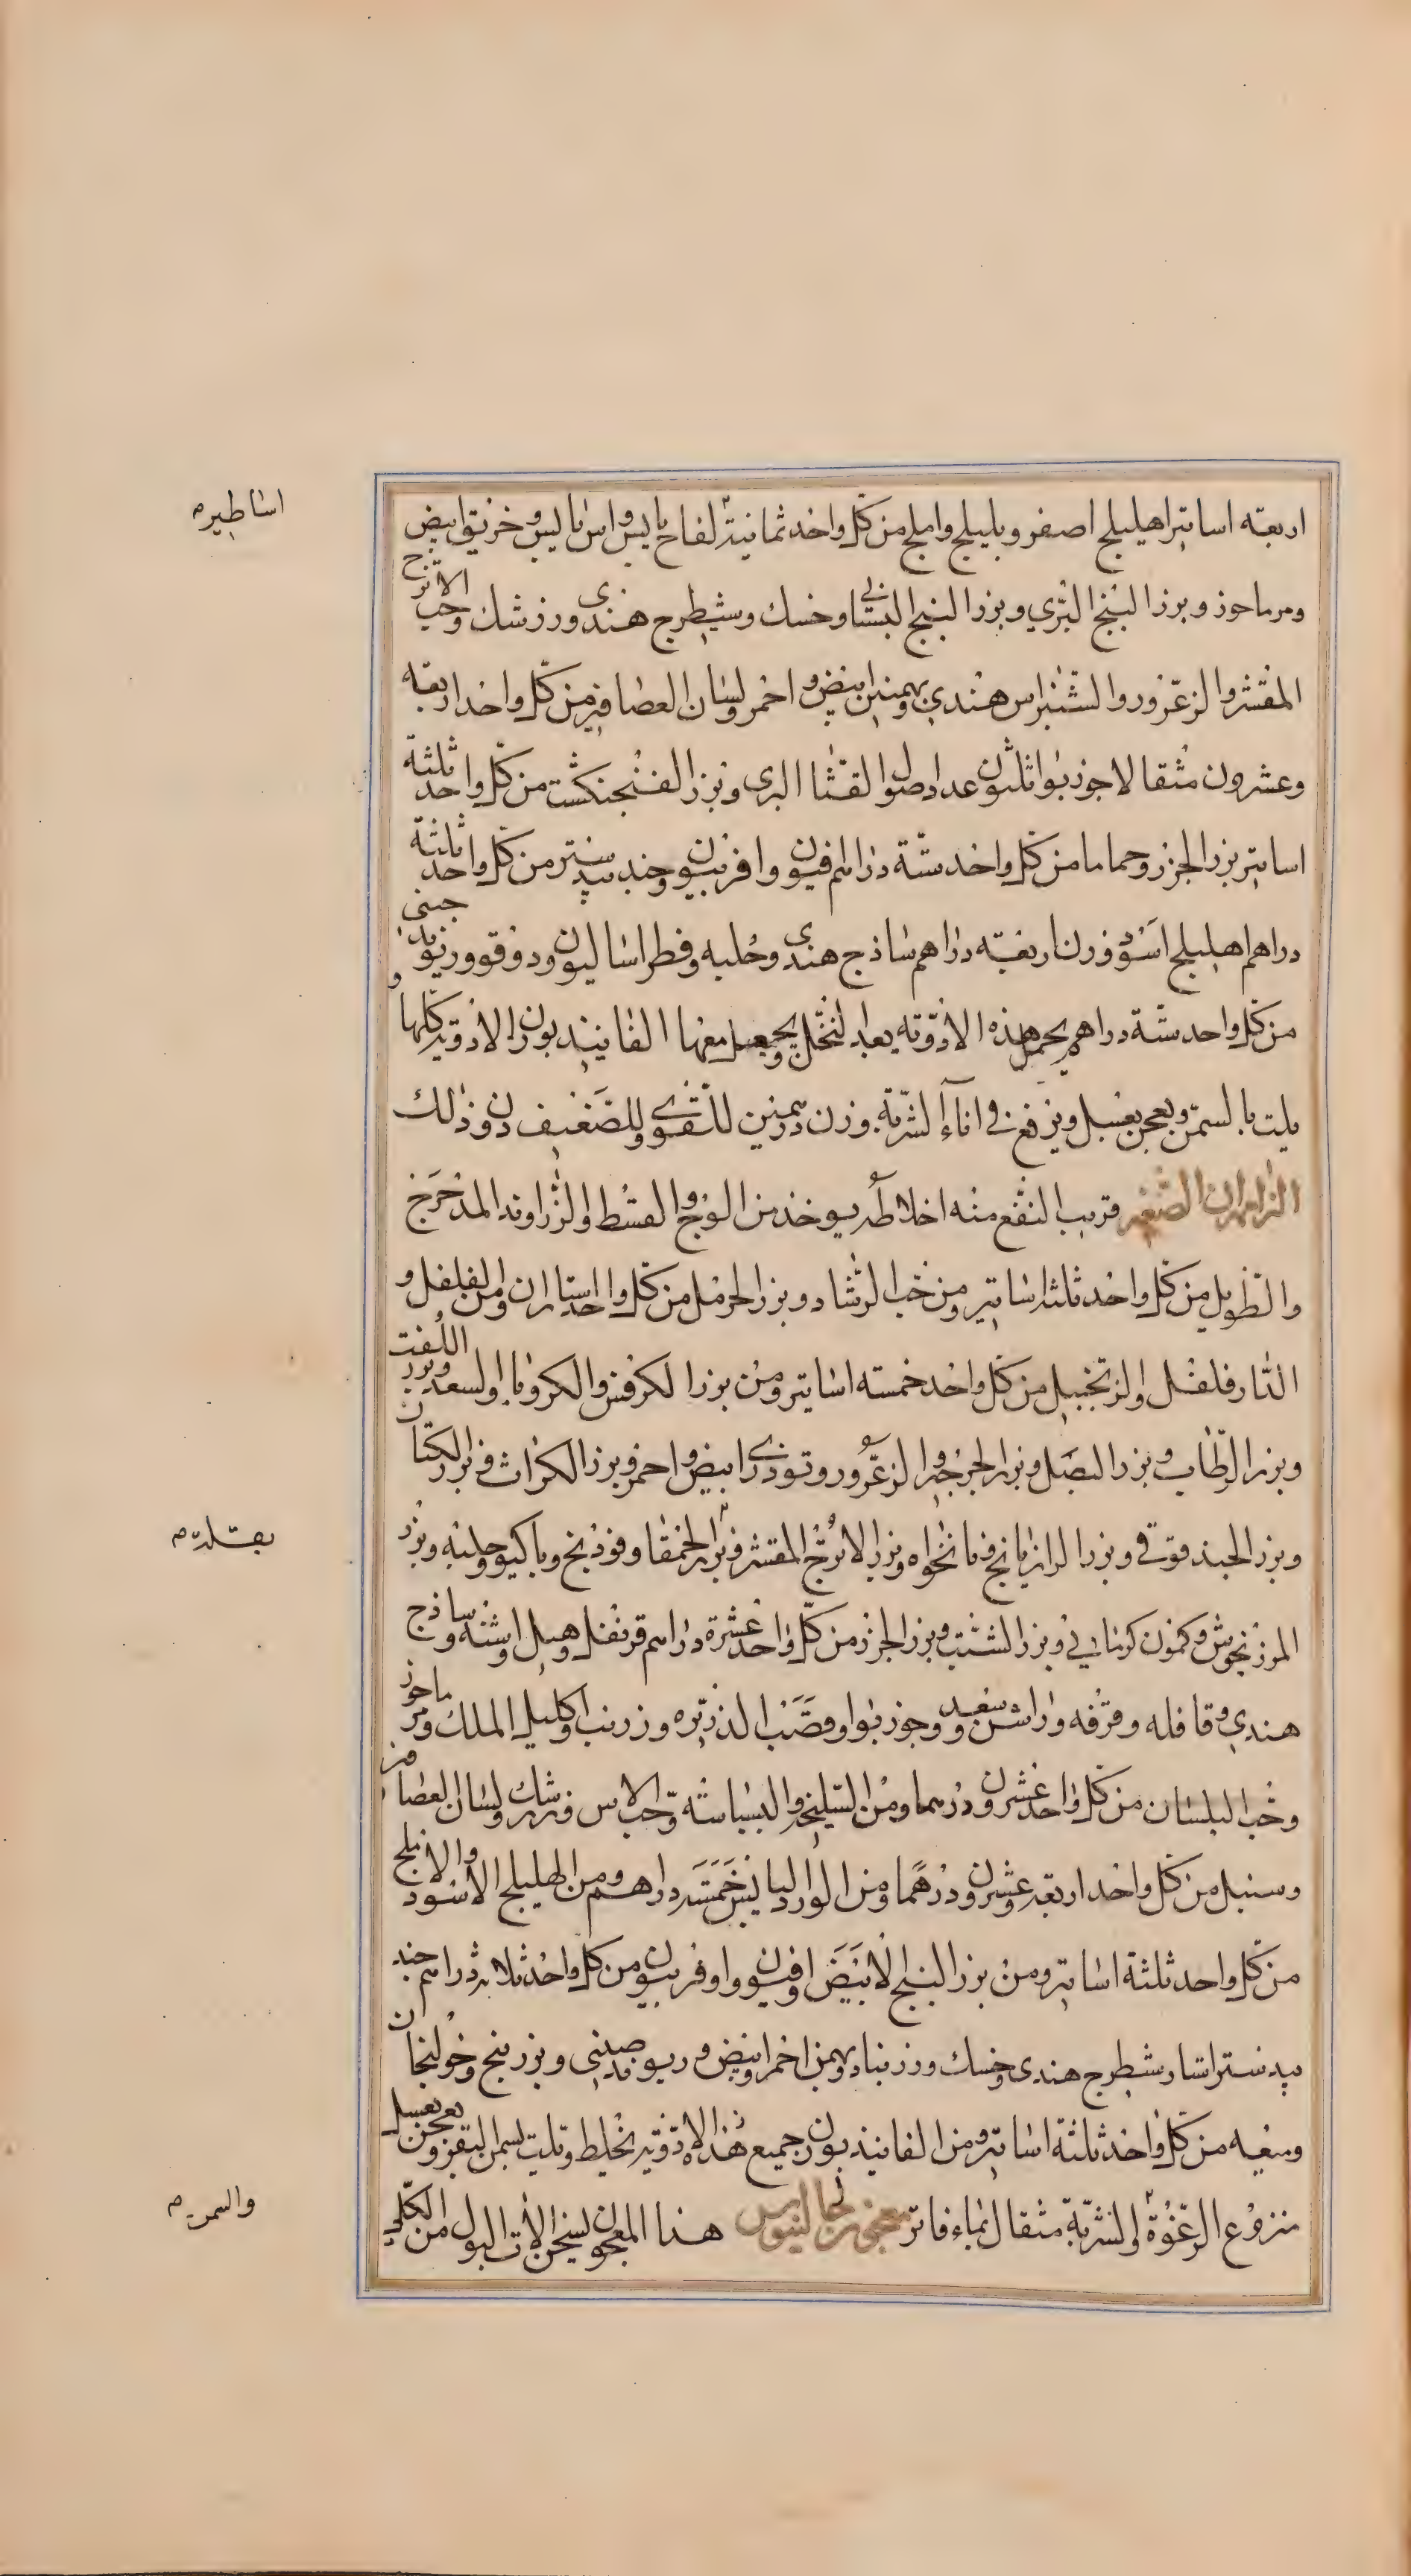 اربعة اساتير اهليلج اصفر وبليلج واملج من كل واحد ثمانية لفاح يابس واس يابس وخربق ابيض
ومرماحوز وبزر البنج البري وبزر البنج البستاني وخسك وشيطرج هندي وزرشك وحب الاترج
المقشر والزعرور والشنبراس هندي وبهمنين ابيض واحمر ولسان العصافير من كل واحد اربعة
وعشرون مثقالا جوزبوا ثلثون عددا وصل القثا البري وبزر الفنجنكشت من كل واحد ثلثة
اساتير بزر الجزر وحماما من كل واحد ستة دراهم افيون وافربيون وجندبيدستر من كل واحد ثلثة
دراهم اهليلج اسود وزن اربعة دراهم ساذج هندي وحلبه وفطراساليون ودوقو وريوند جيني
من كل واحد ستة دراهم يجمل هذه الادوية بعد النخل ويجعل معها الفانيند بوزن الادوية كلها و
يلت بالسمن ويعجن بعسل ويرفع في اناء الشربة وزن درهمين للقوي وللضعيف دون ذلك
الزامهران الصغير قريب النفع منه اخلاطه يوخذ من الوج والقسط والزراوند المدحرج
والطويل من كل واحد ثلثة اساتير ومن حب الرشاد وبزر الحرمل من كل واحد استاران ومن الفلفل و
الدارفلفل والزنجبيل من كل واحد خمسة اساتير ومن بزر الكرفس والكرويا والسعد وبزر اللفت
وبزر الرطاب وبزر البصل وبزر الجرجير والزعرور وتوذري ابيض واحمر وبزر الكراث وبزر الكتان
وبزر الحبندقوقي وبزر الرازيانج ونانخواه وبزر الاترج المقشر وبزر الحمقا وفوذنج وباكيو وحلبه وبزر
المرزنجوش وكمون كرماني وبزر الشبت وبزر الجزر من كل واحد عشرة دراهم قرنفل وهيل واشنه وساذج
هندي وقاقله وقرفه وراشن وسعد وجوزبوا وقصب الذريره وزرنب واكليل الملك ومرماحوز
وحب البلسان من كل واحد عشرون درهما ومن السليخه والبسباسه وحب الاس وزرشك ولسان العصافير
وسنبل من كل واحد اربعة وعشرون درهما ومن الورد اليابس خمسة دراهم ومن الهليلج الاسود والاملج
من كل واحد ثلثة اساتير ومن بزر البنج الابيض وافيون وافربيون من كل واحد ثلاثة دراهم جند
بيدستر استار شيطرج هندي وخسك وزرنباد وبهمن احمر وابيض وريوند صيني وبزر بنج وخولنجان
وميعه من كل واحد ثلثة اساتير ومن الفانيذ بوزن جميع هذه الادوية يخلط ويلت بسمن البقر ويعجن بعسل
منزوع الرغوة والشربة مثقال بماء فاتر معجون لجالينوس هذا المعجون يسخن الات البول من الكلي
اساطيره
بقلة
والسمن